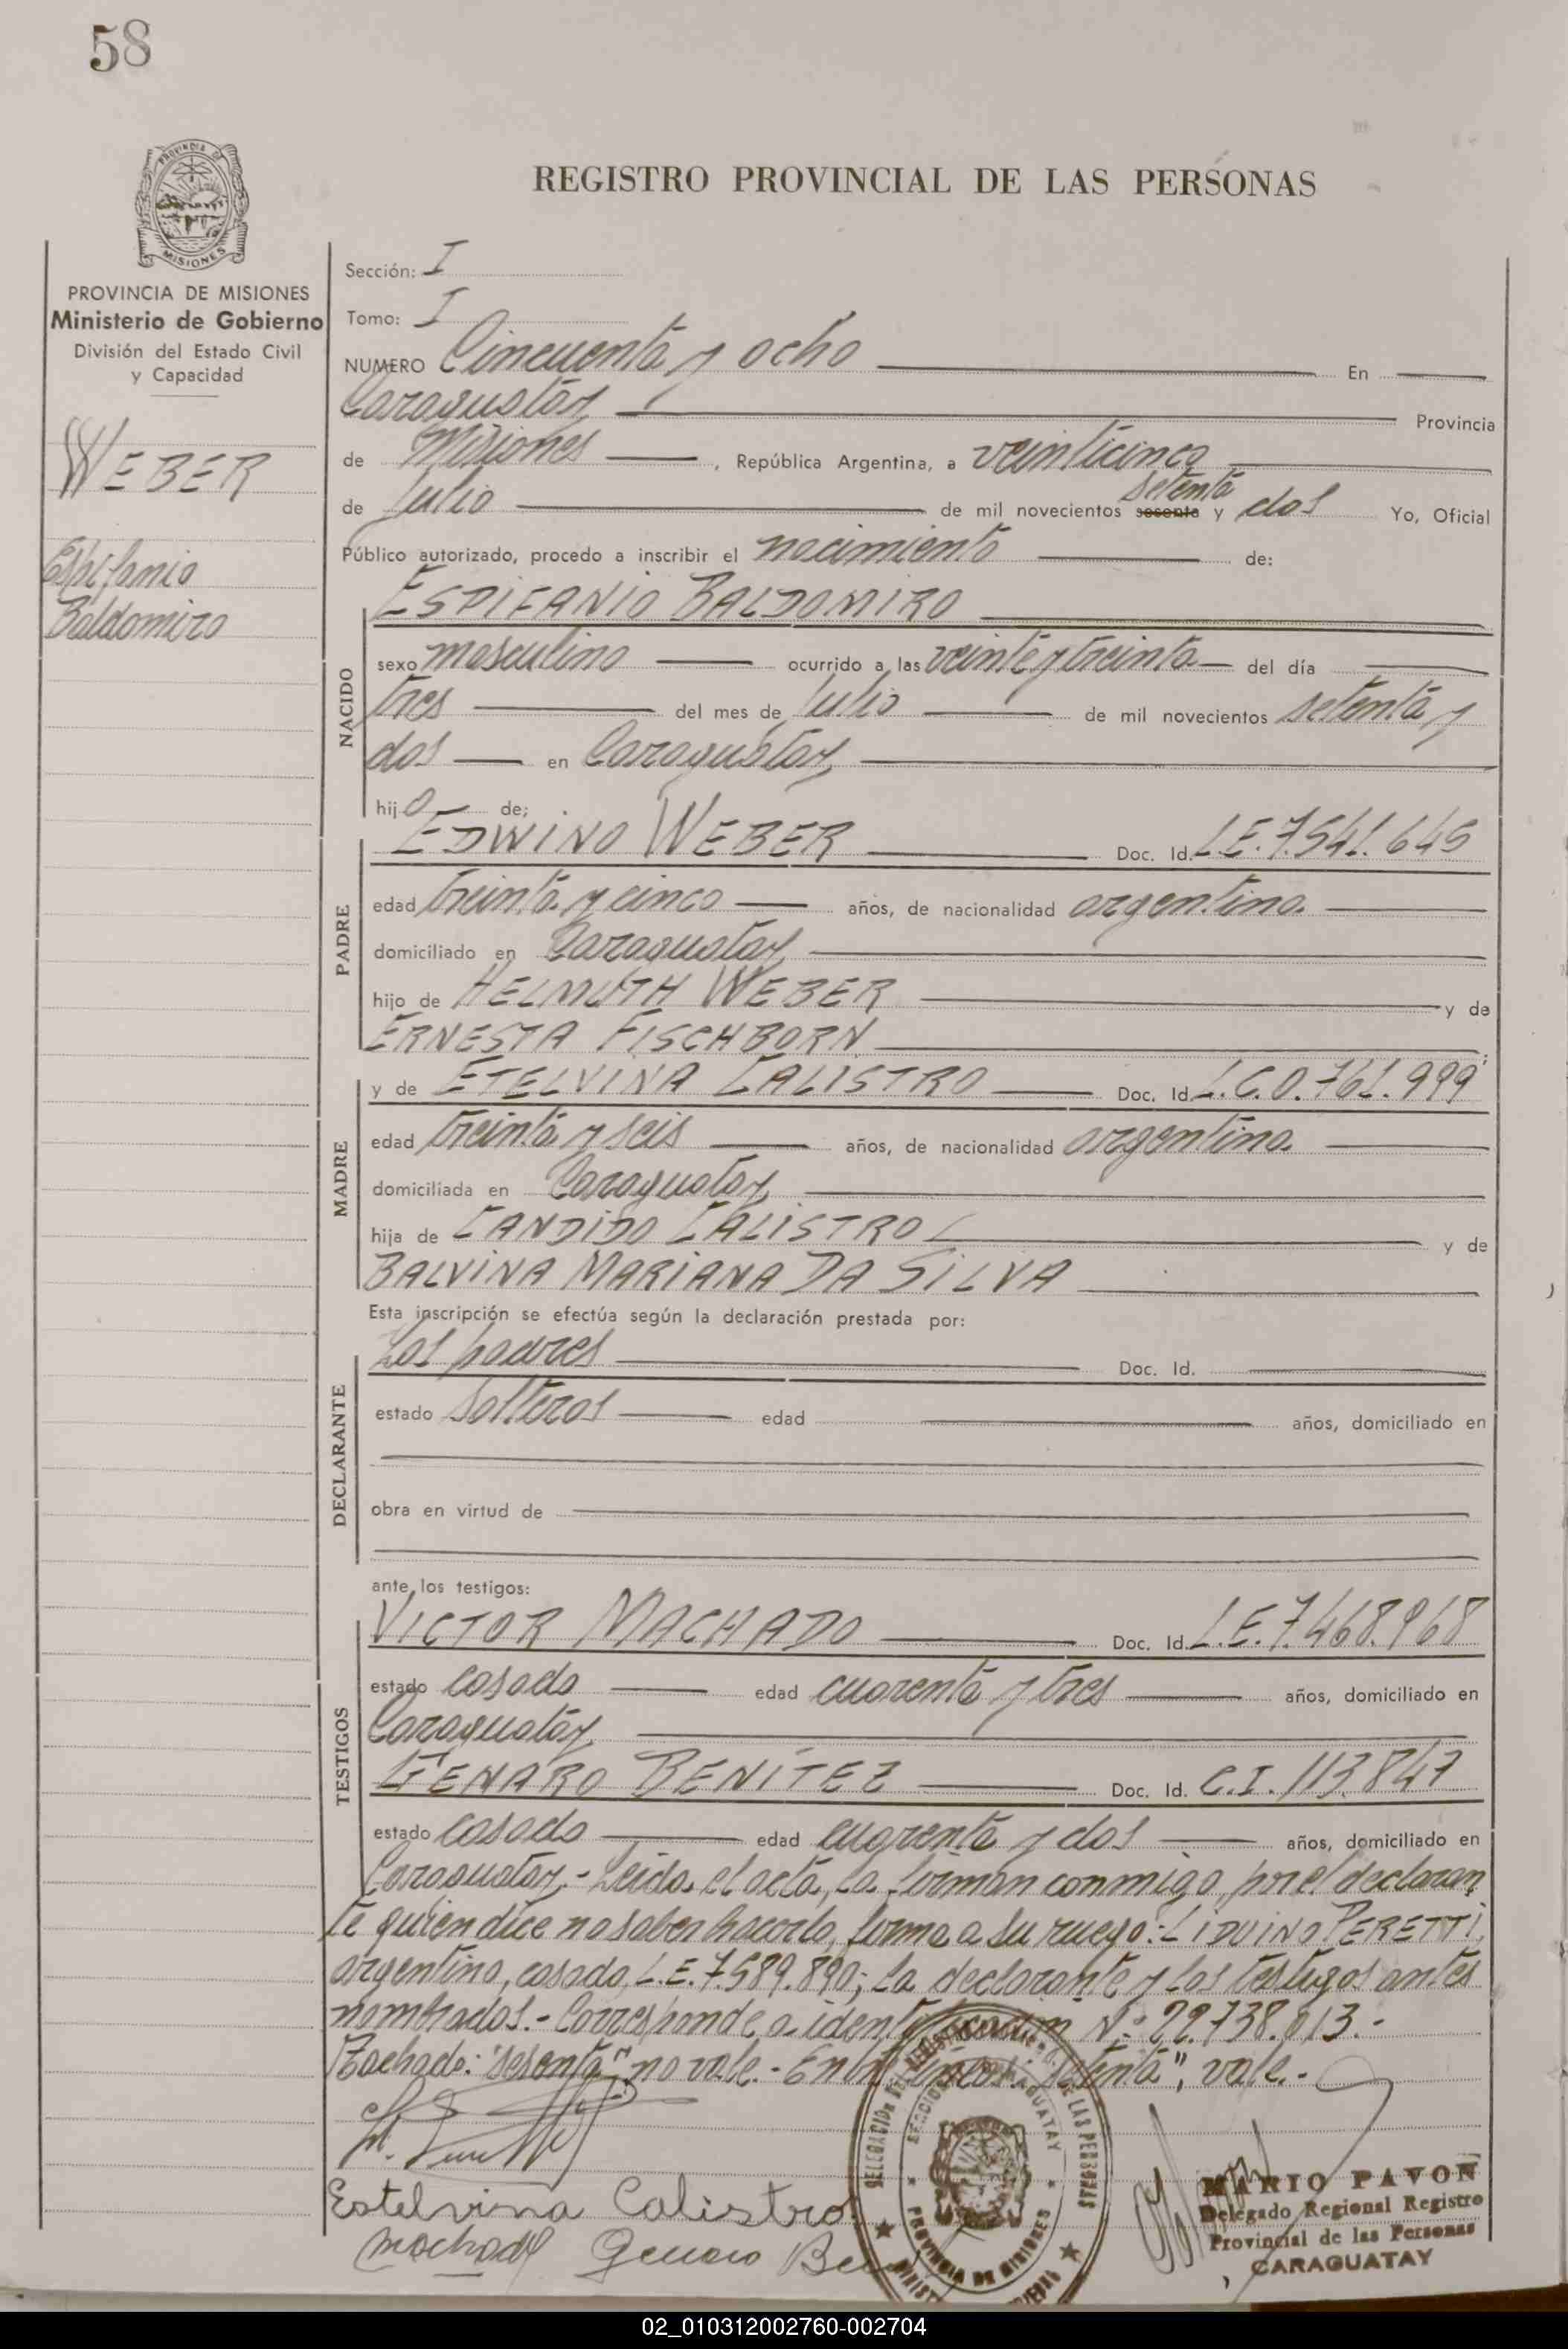 58
REGISTRO PROVINCIAL DE LAS PERSONAS
PROVINCIA DE
MISIONES
PROVINCIA DE MISIONES
Ministerio de Gobierno
División del Estado Civil
y Capacidad
WEBER
Espifanio
Baldomiro
Sección: I
Tomo: I
NUMERO Cincuenta y ocho En
Caraguatay Provincia
de Misiones, República Argentina, a veinticinco
setenta
de Julio de mil novecientos sesenta y dos Yo, Oficial
Público autorizado, procedo a inscribir el nacimiento de:
ESPIFANIO BALDOMIRO
NACIDO
sexo masculino ocurrido a las veinte y treinta del día
tres del mes de Julio de mil novecientos setenta y
dos en Caraguatay
hijo de;
EDWINO WEBER Doc. Id. L.E. 7.541.645
PADRE
edad treinta y cinco años, de nacionalidad argentina
domiciliado en Caraguatay
hijo de HELMUTH WEBER y de
ERNESTA FISCHBORN
y de ETELVINA CALISTRO Doc. Id. L.C. 0.761.999
MADRE
edad treinta y seis años, de nacionalidad argentina
domiciliada en Caraguatay
hija de CANDIDO CALISTRO y de
BALVINA MARIANA DA SILVA
Esta inscripción se efectúa según la declaración prestada por:
DECLARANTE
Los padres Doc. Id.
estado solteros edad años, domiciliado en
obra en virtud de
ante los testigos:
TESTIGOS
VICTOR MACHADO Doc. Id. L.E. 7.468.968
estado casado edad cuarenta y tres años, domiciliado en
Caraguatay
GENARO BENÍTEZ Doc. Id. C.I. 113.847
estado casado edad cuarenta y dos años, domiciliado en
Caraguatay.- Leida el acta, la firman conmigo, por el declaran
te quien dice no saber hacerlo, firma a su ruego: LIDUINO PERETTI,
argentino, casado, L.E. 7.589.890; la declarante y los testigos antes
nombrados.- Corresponde a identificación Nº 22.738.013.-
Tachado: "sesenta" no vale.- Entre líneas: "setenta", vale.-
Estelvina Calistro
Machado Genaro
SECCION CARAGUATAY
PROVINCIA DE MISIONES
MARIO PAVON
Delegado Regional Registro
Provincial de las Personas
CARAGUATAY
02_010312002760-002704